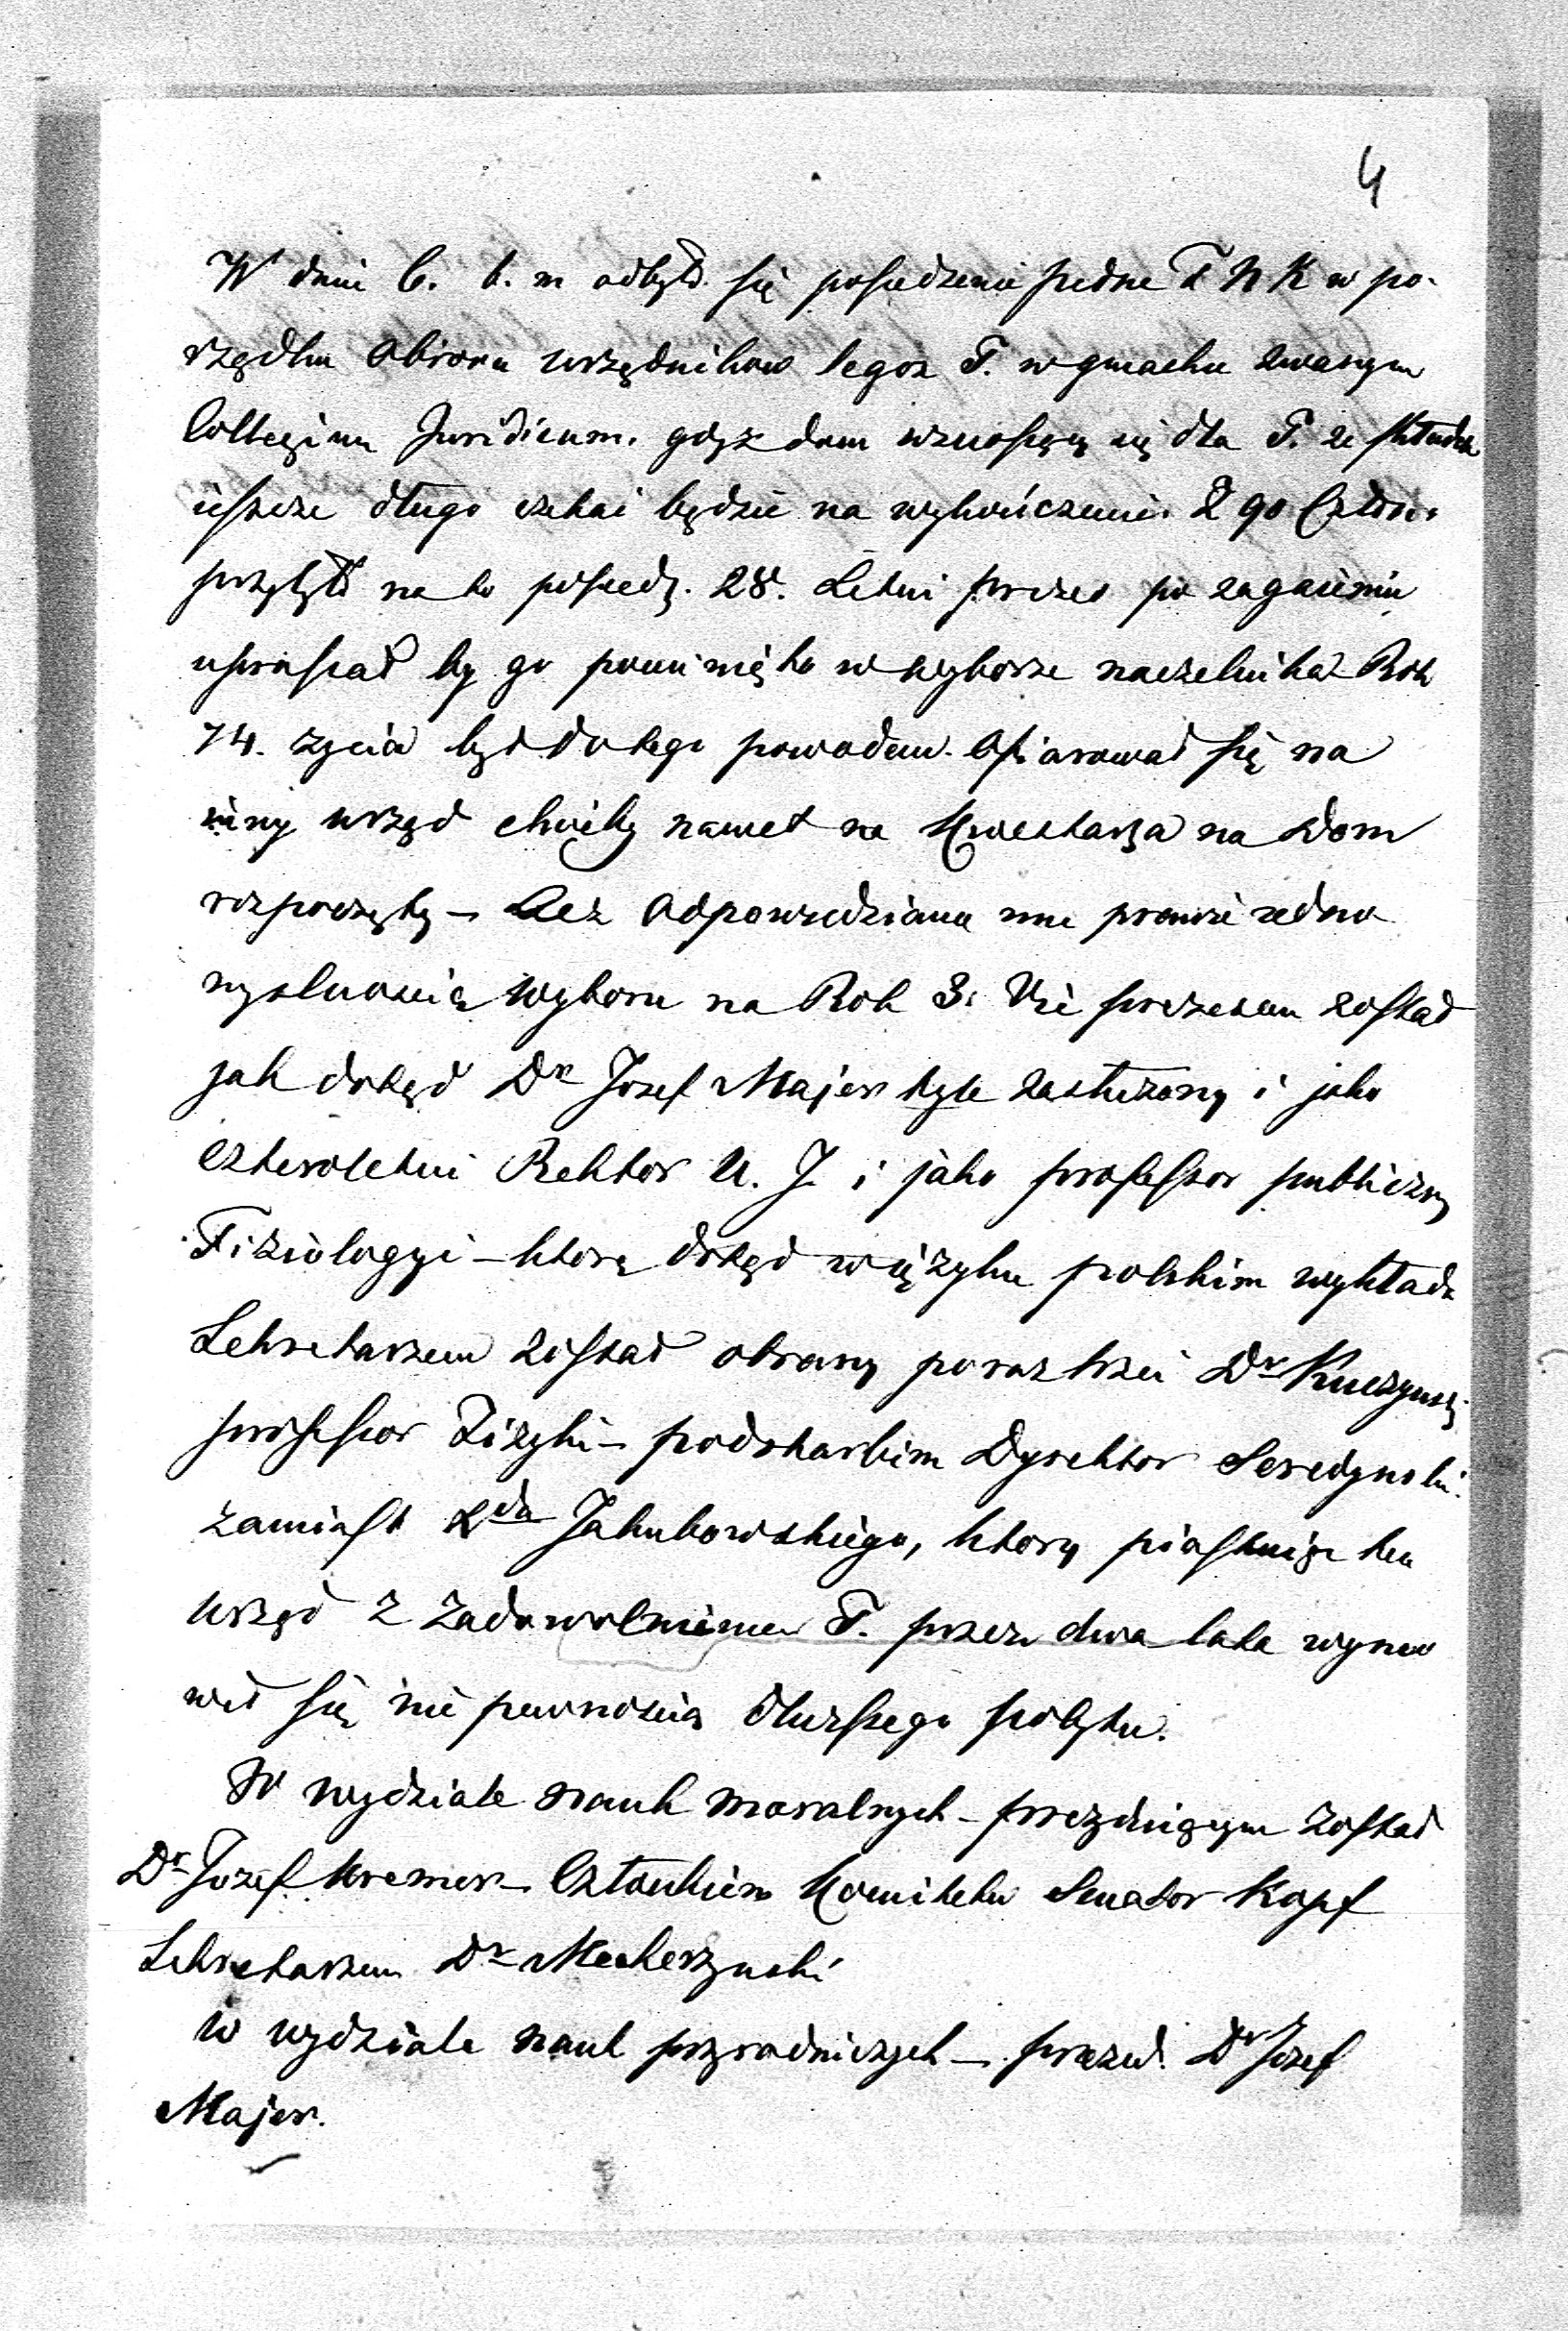 4
W dniu 6. b. m odbyło się posiedzenie pełne T N K w po-
rządku obioru urzędnikow tegoz T. w gmachu zwanym
Collegium Juridicum. gdyz dom wznoszący się dla T. ze składek
jeszcze długo czekać będzie na wykończenie. Z 90 Człon.
przybyło na to posiedz. 28. Letni prezes po zagajeniu
upraszał by go pominięto w wyborze naczelnika Rok
74. zycia był do tego powodem. Ofiarował się na
inny urząd choćby nawet na Kwestarza na Dom
rozpoczęty – Lecz odpowiedziano mu prawie jedno
myslnoscią wyboru na Rok 3. Vice prezesem został
jak dotąd Dr Jozef Majer tyle zasłużony i jako
czteroletni Rektor U. J. i jako professor publiczny
Fiziologyi – ktorą dotąd w języku polskim wykłada
Sekretarzem został obrany poraz trzeci Dr Kuczynski
professor Fizyki – podskarbim Dyrektor Seredynski.
zamiast Jakubowskiego, ktory piastując ten
urząd z zadowolnieniem T. przez dwa lata wymo
wił się nie pewnoscią dłuzszego pobytu.
W wydziale nauk moralnych – prezydującym został
Dr Jozef Kremer – Członkiem Komitetu Senator Kopf
Sekretarzem Dr Mecherzynski
W wydziale nauk przyrodniczych – prezed. Dr Jozef
Majer.